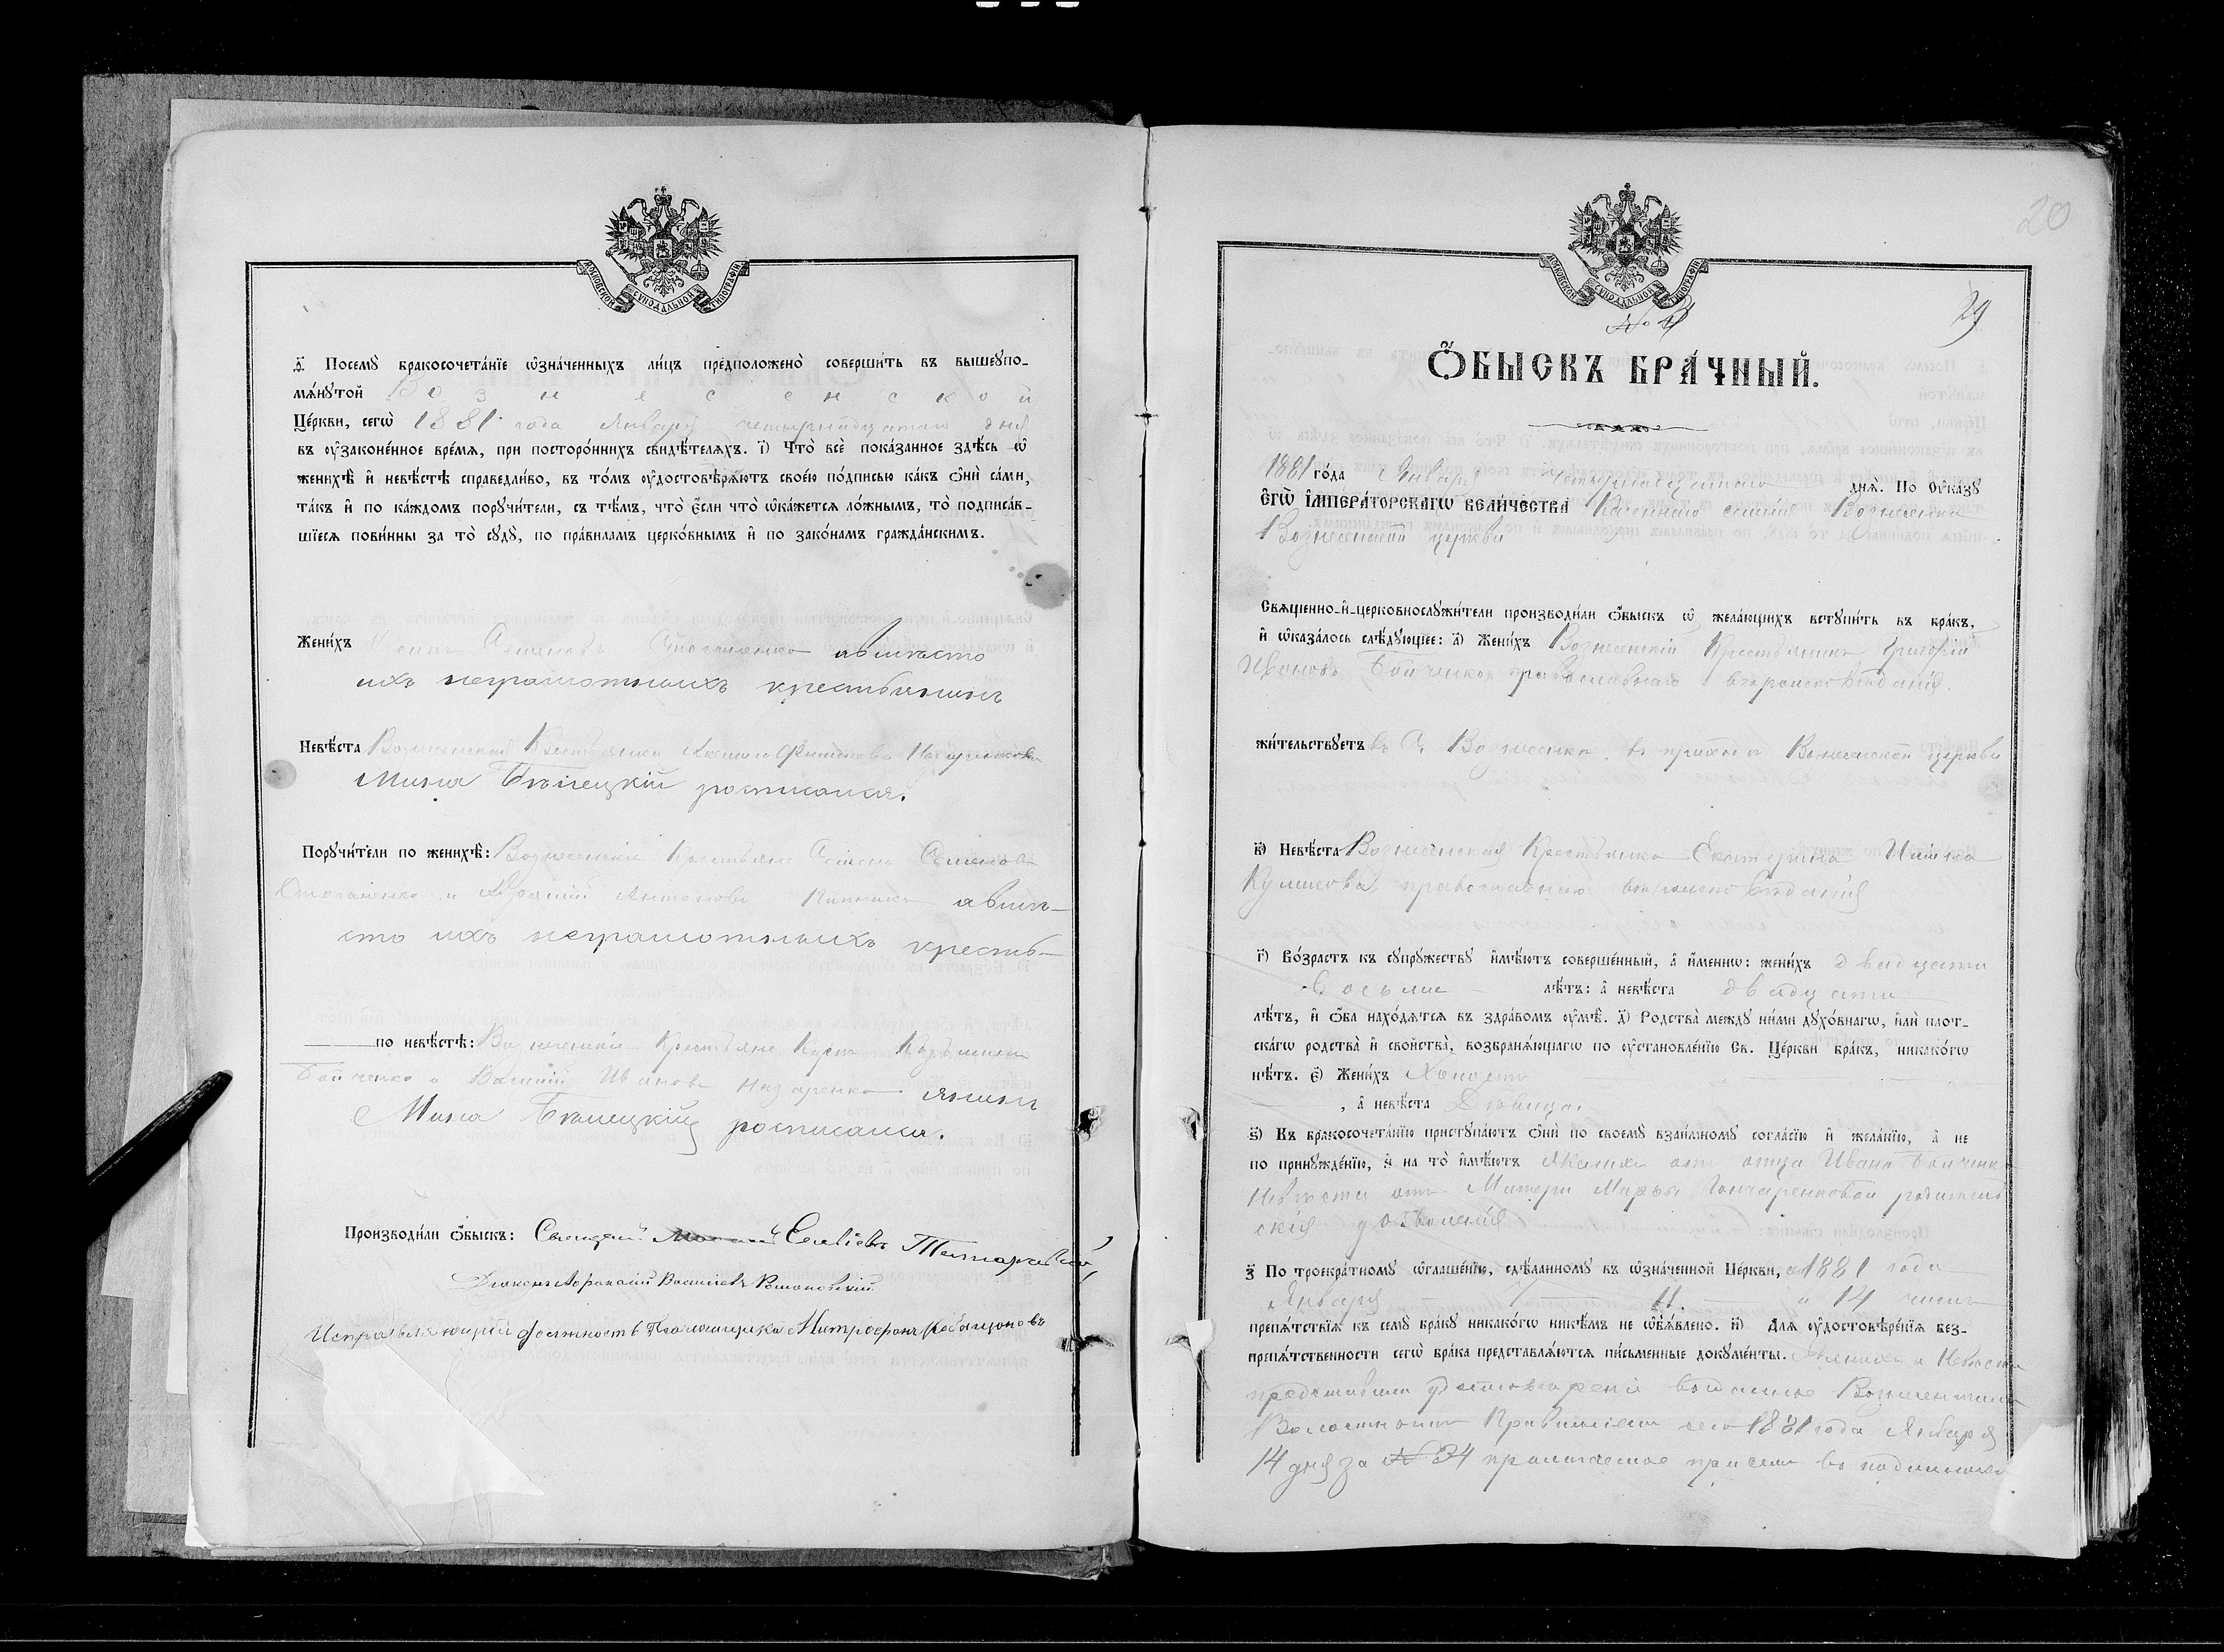 МОСКОВСКОЙ СѴНОДАЛЬНОЙ ТИПОГРАФІИ
ѳ҃. Посемꙋ̀ бракосочета́нїе ѡ҆зна́ченныхъ ли́цъ предположено̀ соверши́ть въ вышеꙋпо-
мѧ́нꙋтой Вознесенской
Це́ркви, сегѡ̀ 1881 года Января четырнадцатаго дня
въ ᲂу҆зако́ненное вре́мѧ, при посторо́ннихъ свидѣ́телѧхъ. і҃) Что̀ всѐ пока́занное здѣ́сь ѡ҆
женихѣ̀ и҆ невѣ́стѣ справедли́во, въ то́мъ ᲂу҆достовѣрѧ́ютъ свое́ю по́дписью ка́къ ѻ҆нѝ са́ми,
та́къ и҆ по ка́ждомъ порꙋчи́тели, съ тѣ́мъ, что̀ є҆́сли что̀ ѡ҆ка́жетсѧ ло́жнымъ, то̀ подписа́в-
шїесѧ пови́нны за то̀ сꙋдꙋ̀, по пра́виламъ церко́внымъ и҆ по зако́намъ гражда́нскимъ.
Жени́хъ Семеновъ авместо
ихъ неграмотныхъ крестьянинъ
Невѣ́ста Вознесенская Крестьянка
Мина Бѣлецкій росписался.
Порꙋчи́тели по женихѣ̀: Вознесенскіе Крестьяне Семеновъ
и Антоновъ авмѣ-
сто ихъ неграмотныхъ кресть-
по невѣ́стѣ: Вознесенскіе Крестьяне
Бойченко и Ивановъ Назаренко янинъ
Мина Бѣлецкій росписался.
Производи́ли ѻ҆́быскъ: Священ.
Діаконъ Аѳанасій Васильевъ Романовскій
Исправляющій должность Псаломщика Митрофанъ
20
МОСКОВСКОЙ СѴНОДАЛЬНОЙ ТИПОГРАФІИ
29
Ѻ҆́БЫСКЪ БРА́ЧНЫЙ.
1881 го́да Января четырнадцатаго днѧ̀. По ᲂу҆ка́зꙋ
Є҆гѡ̀ І҆мпера́торскагѡ вели́чества Казеннаго селенія Вознесенка
Вознесенской церкви
Свѧщенно-и҆-церковнослꙋжи́тели производи́ли ѻ҆́быскъ ѡ҆ жела́ющихъ встꙋпи́ть въ бра́къ,
и҆ ѡ҆каза́лось слѣ́дꙋющее: а҃) Жени́хъ Вознесенскій Крестьянинъ Григорій
Ивановъ Бойченко православнаго вѣроисповѣданія.
жи́тельствꙋетъ въ С. Вознесенка, въ приходѣ Вознесенской церкви
в҃) Невѣ́ста Вознесенская Крестьянка Екатерина
православнаго вѣроисповѣданія
г҃) Во́зрастъ къ сꙋпрꙋ́жествꙋ и҆мѣ́ютъ соверше́нный, а҆ и҆́меннѡ: жени́хъ двадцати
восьми лѣ́тъ: а҆ невѣ́ста двадцати
лѣ́тъ, и҆ ѻ҆́ба нахо́дѧтсѧ въ здра́вомъ ᲂу҆мѣ̀. д҃) Родства̀ междꙋ̀ ни́ми дꙋхо́внагѡ, и҆лѝ плот-
ска́гѡ родства̀ и҆ сво́йства, возбранѧ́ющагѡ по ᲂу҆становле́нїю Св. Це́ркви бра́къ, никако́гѡ
нѣ́тъ. є҃) Жени́хъ Холостъ
, а҆ невѣ́ста Дѣвица.
ѕ҃) Къ бракосочета́нїю пристꙋпа́ютъ ѻ҆нѝ по своемꙋ̀ взаи́мномꙋ согла́сїю и҆ жела́нїю, а҆ не
по принꙋжде́нїю, и҆ на то̀ и҆мѣ́ютъ Женихъ отъ отца Ивана Бойченко
Невѣста отъ Матери Марьи Гончаренковой родитель-
скія дозволенія
з҃ По троекра́тномꙋ ѡ҆глаше́нїю, сдѣ́ланномꙋ въ ѡ҆зна́ченной Це́ркви, 1881 года
Января 11 и 14 чиселъ
препѧ́тствїѧ къ семꙋ̀ бра́кꙋ никако́гѡ никѣ́мъ не ѡ҆б̾ѧ́влено. и҃) Длѧ ᲂу҆достовѣре́нїѧ без-
препѧ́тственности сегѡ̀ бра́ка представлѧ́ютсѧ пи́сьменные докꙋме́нты. Женихъ и Невѣста
представили удостовѣреніе выданное Вознесенскимъ
Волостнымъ Правленіемъ сего 1881 года Января
14 дня за № 34 прилагаемое при семъ въ подлиннике